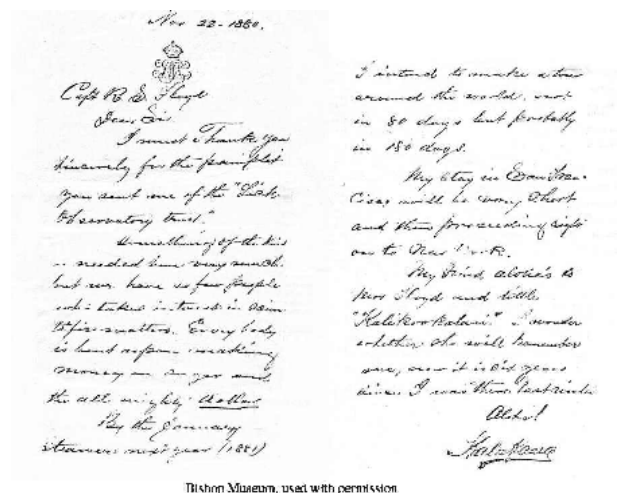 Nov 22 - 1880.
Capt R. S. Floyd
Dear Sir
I must Thank you
sincerely for the pamphlet
you sent me of the "Lick
Observatory trust."
Something of the kind
is needed here very much
but we have so few people
who takes interest in scien
tific matters. Every body
is bent upon making
money on sugar and
the all mighty dollar
By the January
steamer next year (1881)
I intend to make a tour
around the world, not
in 80 days but probably
in 180 days.
My stay in San Fran
cisco will be very short
and then proceeding right
on to New York.
My kind aloha's to
Mrs Floyd and little
I wonder
whether she will remember
me, now it is six years
since I was there
Aloha!
Kalakaua
Bishop Museum, used with permission